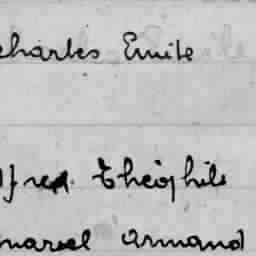 charles Emile
lfred Théophile
marcel armand